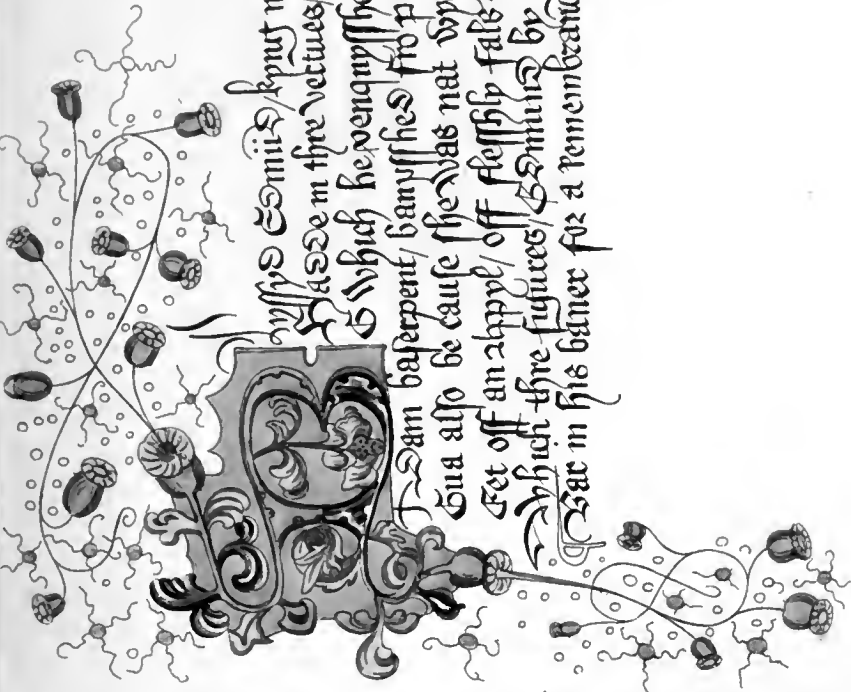 Blyssyd Edmūd / kyng
Hadde in thre vertues/
By which he venquysshe
Adam ba serpent / banysshed fro p
Eua also be cause she was nat wy
Eet off an appyl / off flesshly fals
Which thre figures / Edmund by
Bar in his baner for a remembranc